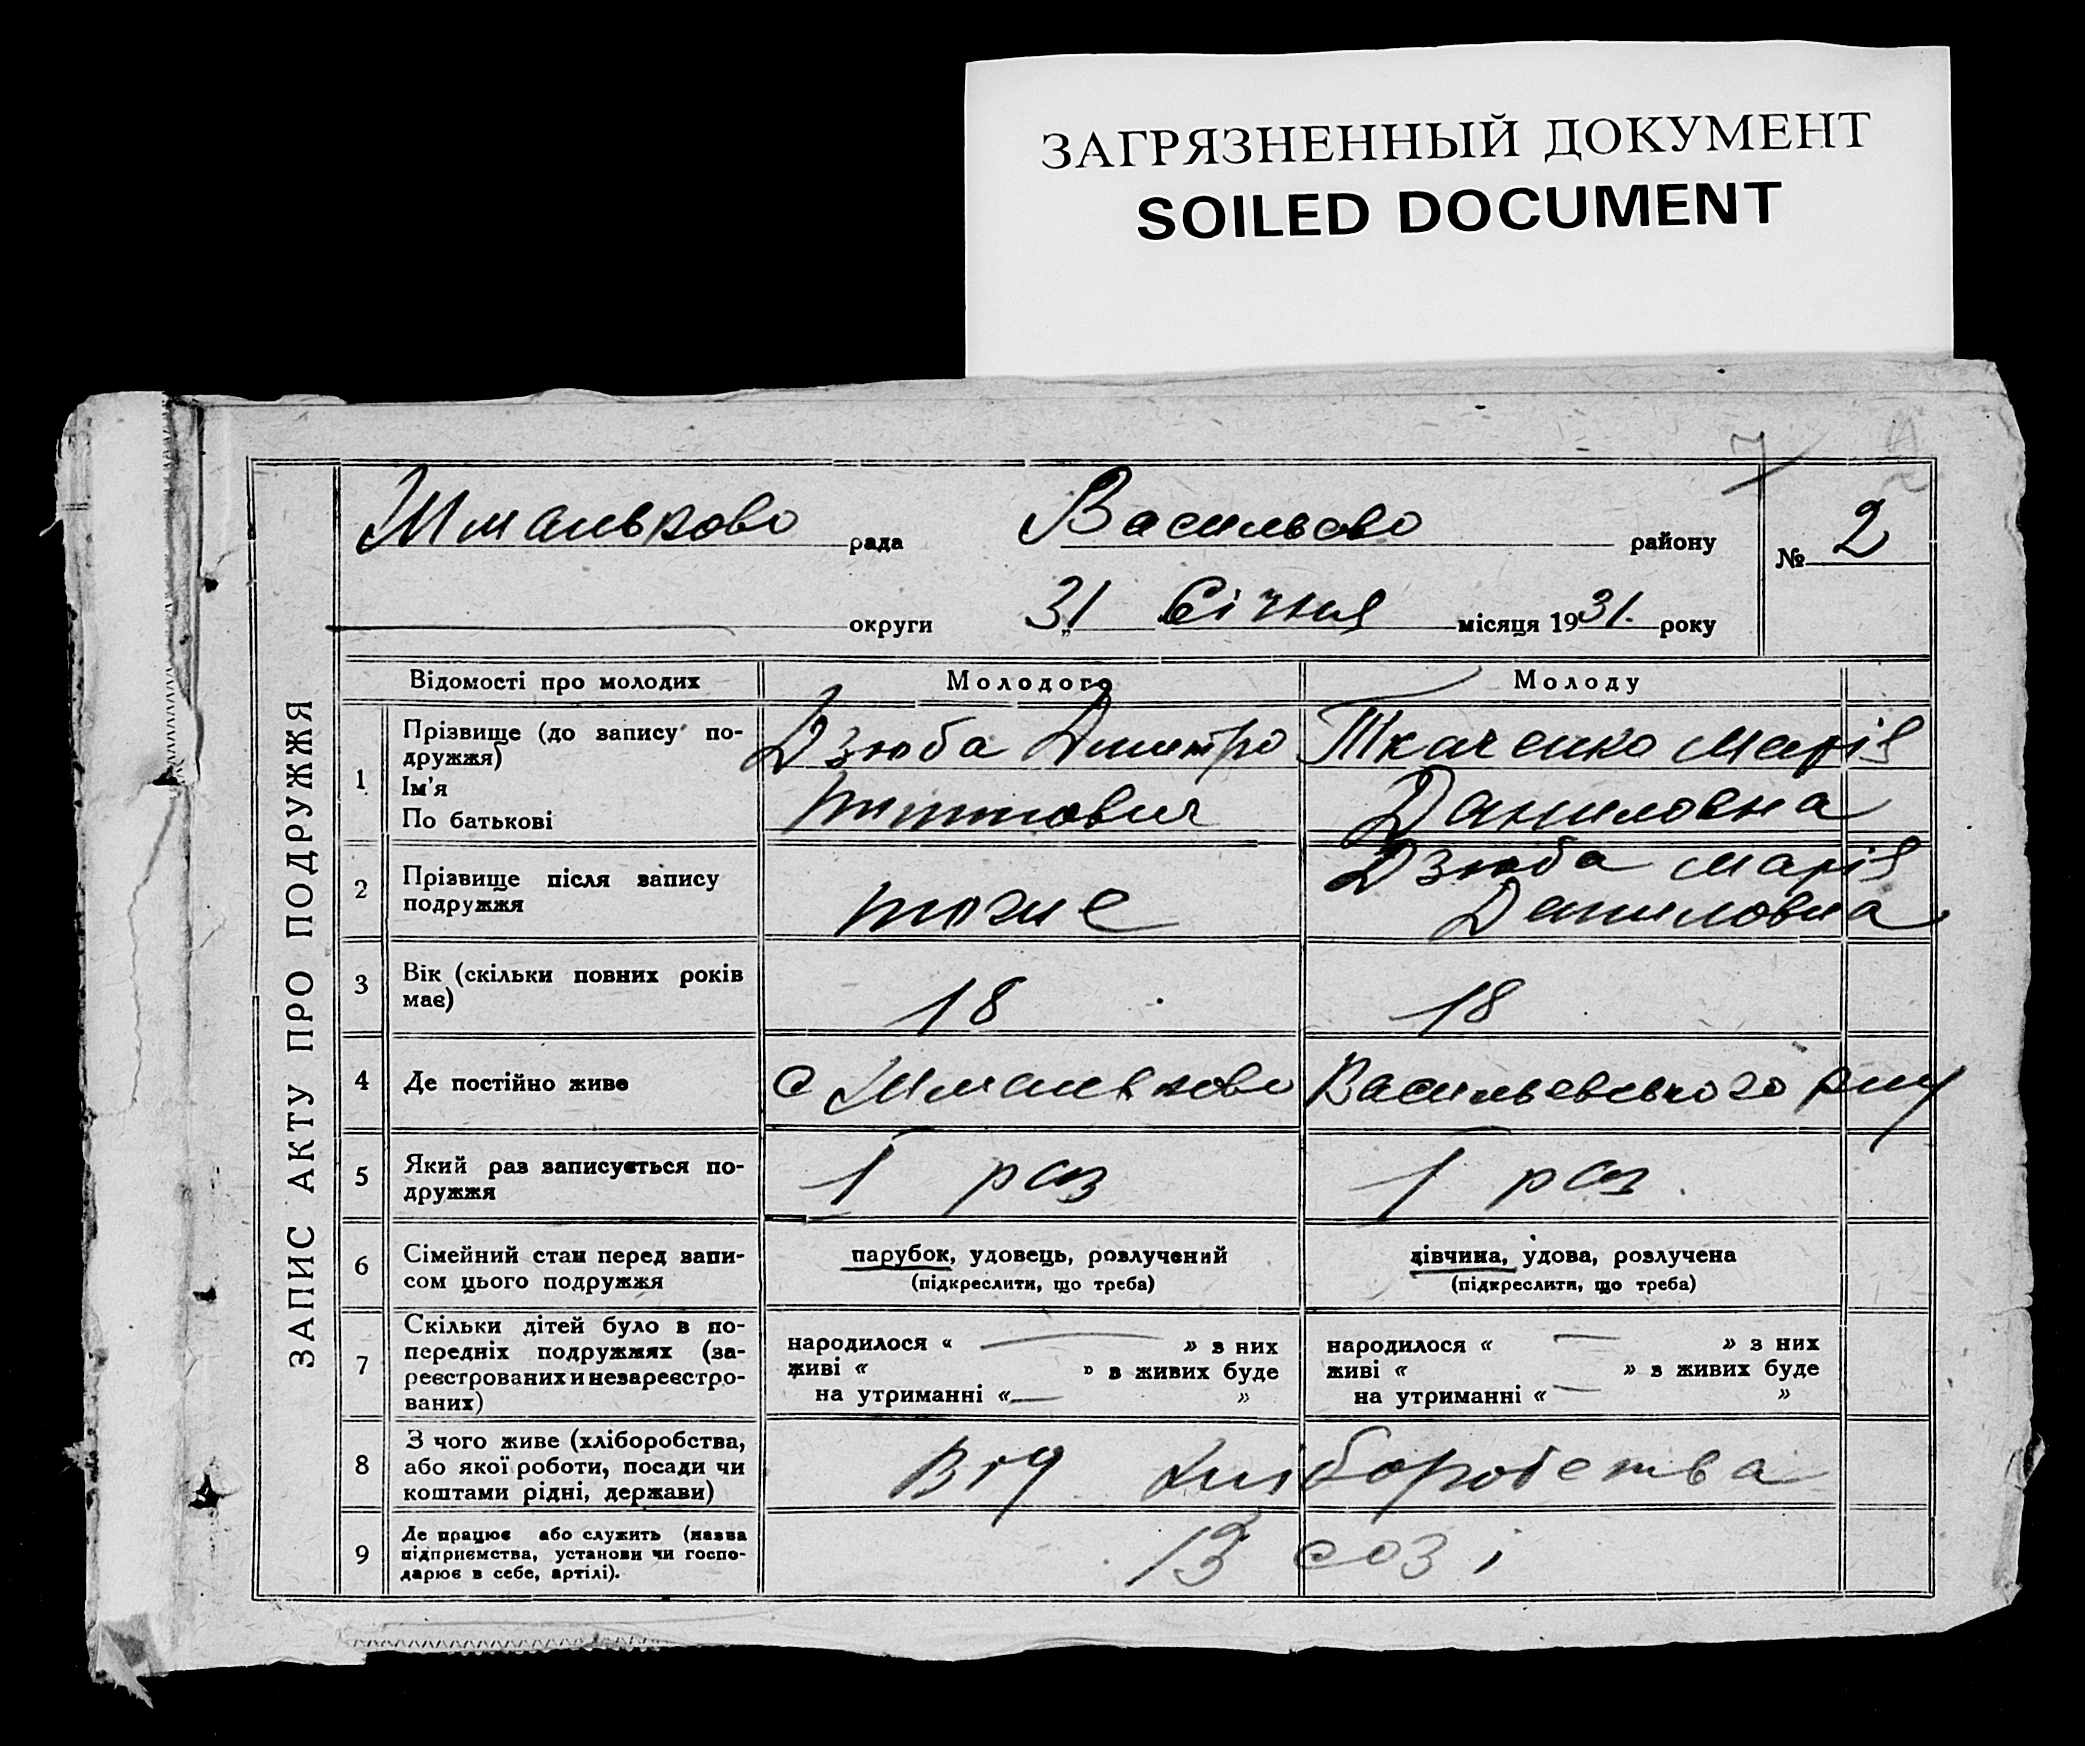 ЗАГРЯЗНЕННЫЙ ДОКУМЕНТ
SOILED DOCUMENT
ЗАПИС АКТУ ПРО ПОДРУЖЖЯ
7
Шмальково рада Васильево району № 2
округи „31 Січня місяця 1931. року
Відомості про молодих Молодого Молоду
1 Прізвище (до запису по-
дружжя)
Ім'я
По батькові
Дзюба Дмитро
Титович
Ткаченко Марія
Даниловна
2 Прізвище після запису
подружжя
тоже
Дзюба Марія
Даниловна
3 Вік (скільки повних років
має)
18 18
4 Де постійно живе с Шмальково Васильевського р-ну
5 Який раз записується по-
дружжя
1 раз 1 раз.
6 Сімейний стан перед запи-
сом цього подружжя
парубок, удовець, розлучений
(підкреслити, що треба)
дівчина, удова, розлучена
(підкреслити, що треба)
7 Скільки дітей було в по-
передніх подружжях (за-
реєстрованих и незареєстро-
ваних)
народилося « — » з них
живі « » в живих буде
на утриманні «— »
народилося « — » з них
живі « » з живих буде
на утриманні «— »
8 З чого живе (хліборобства,
або якої роботи, посади чи
коштами рідні, держави)
Від хліборобства
9 Де працює або служить (назва
підприємства, установи чи госпо-
дарює в себе, артілі).
В созі